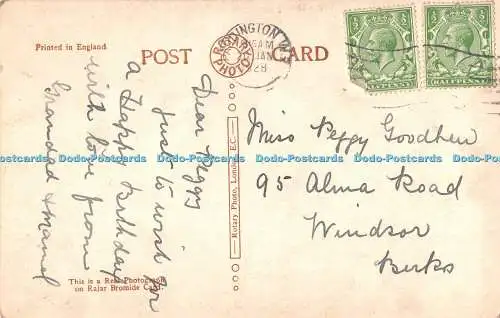 Printed in England
POST CARD
ROTARY PHOTO
DINGTON
AM
JAN
28
HALFPENNY
Dear Peggy
Just to wish for
a Happy Birthday
with love from
Grandad &
Miss Peggy Goodhew
95 Alma Road
Windsor
Berks
Rotary Photo, London, E.C.
This is a Real Photograph
on Rajar Bromide Card
Dodo-Postcards.com Dodo-Postcards.com Dodo-Postcards.com Dodo-Postcards.com Dodo-Postcards.com